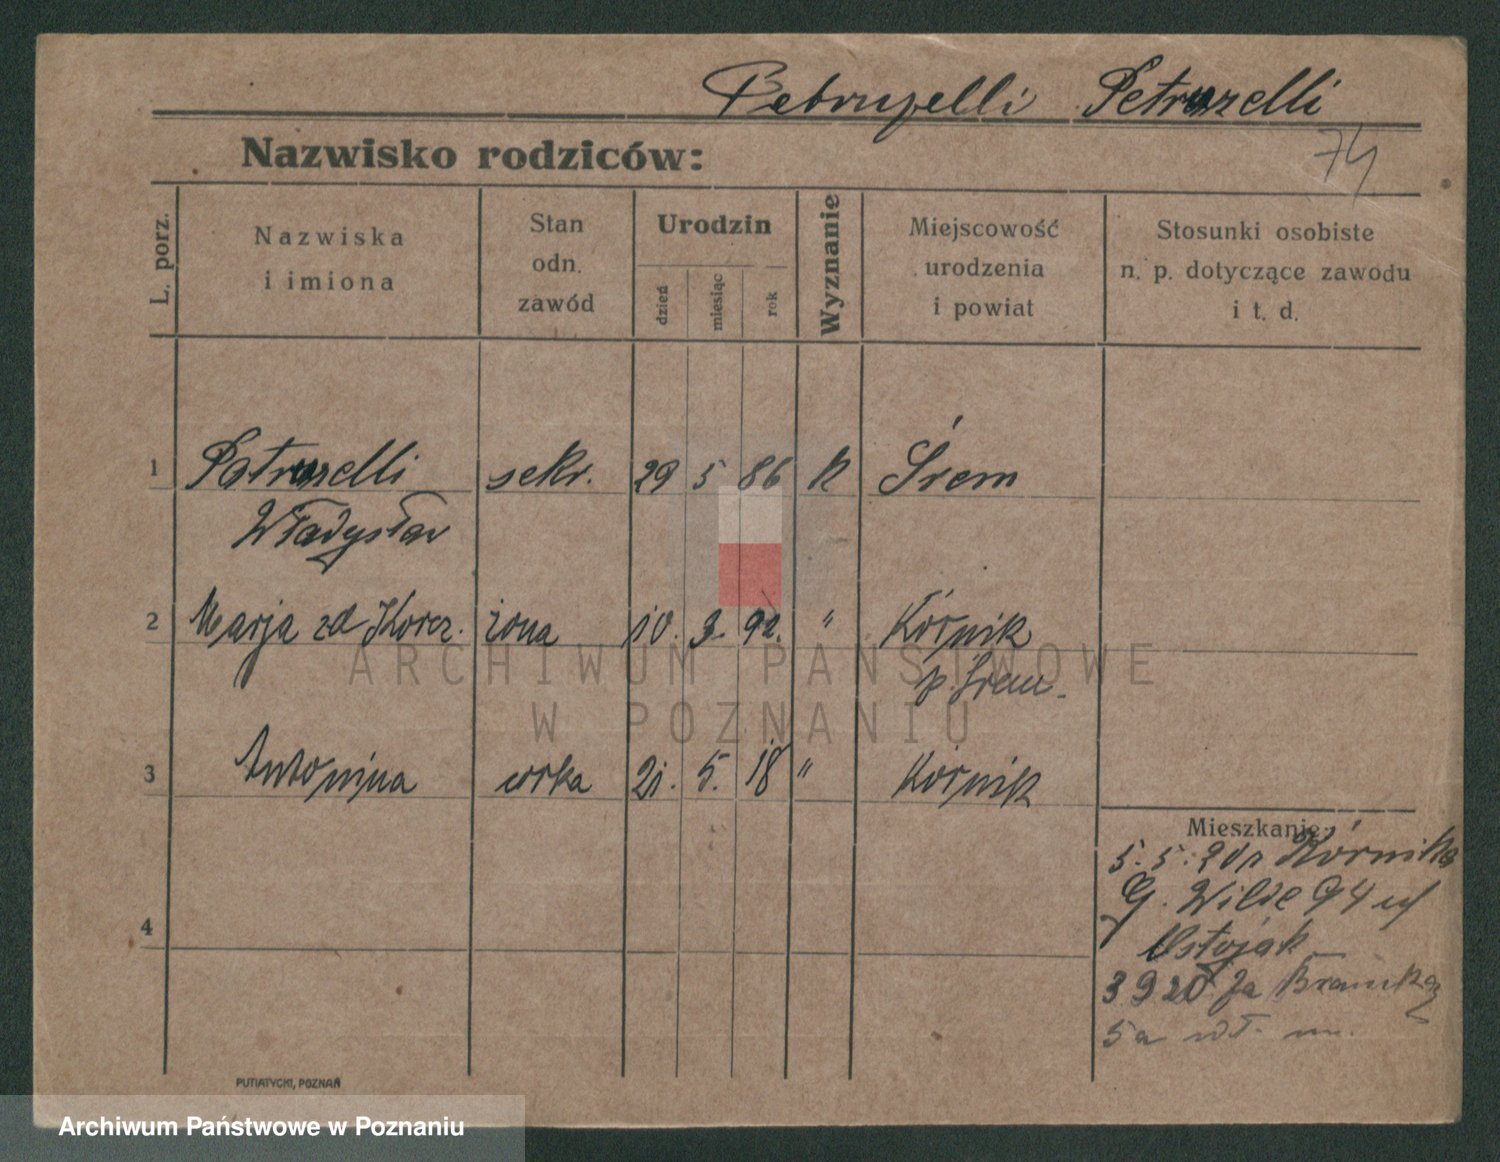 Petruzelli Petruzelli
74
Nazwisko rodziców:
L. porz.
Nazwiska
i imiona
Stan
odn.
zawód
Urodzin
dzień
miesiąc
rok
Wyznanie
Miejscowość
urodzenia
i powiat
Stosunki osobiste
n. p. dotyczące zawodu
i t. d.
1 Petruzelli sekr. 29 5 86 k Śrem
Władysław
2 Marja zd Korcz. żona 10. 3. 92. " Kórnik
p. Śrem
3 Antonina córka 21. 5. 18 " Kórnik
Mieszkanie:
5. 5. 20 z Kórnika
G. Wilde 94 u
Ostojak
4
3 9 20 Ja
5a wł. m.
PUTIATYCKI, POZNAŃ
ARCHIWUM PAŃSTWOWE
W POZNANIU
Archiwum Państwowe w Poznaniu